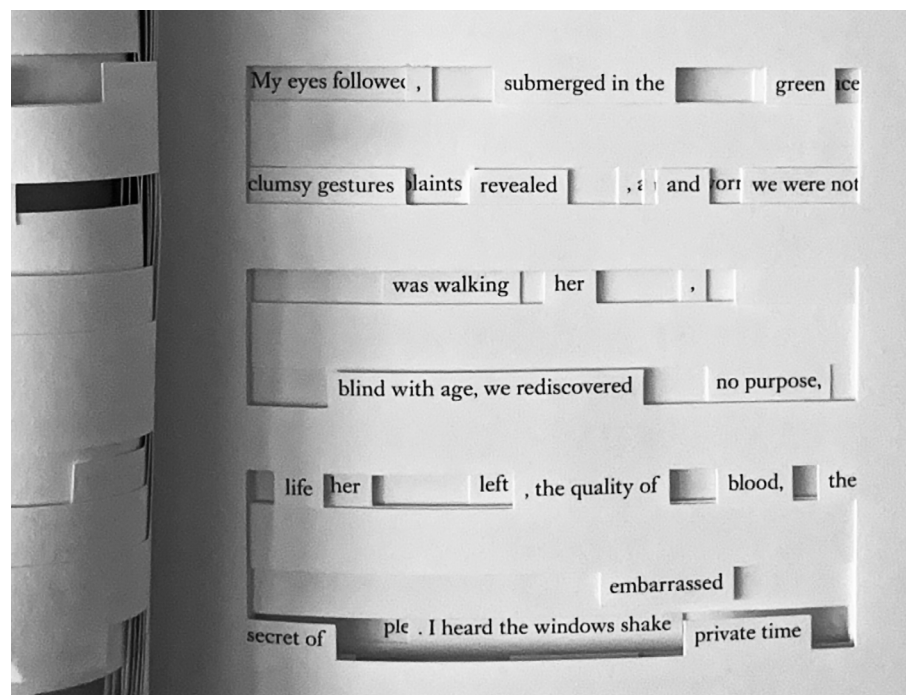 My eyes followed , submerged in the green ice
clumsy gestures plaints revealed , and we were not
was walking her ,
blind with age, we rediscovered no purpose,
life her left , the quality of blood, the
embarrassed
secret of ple . I heard the windows shake private time